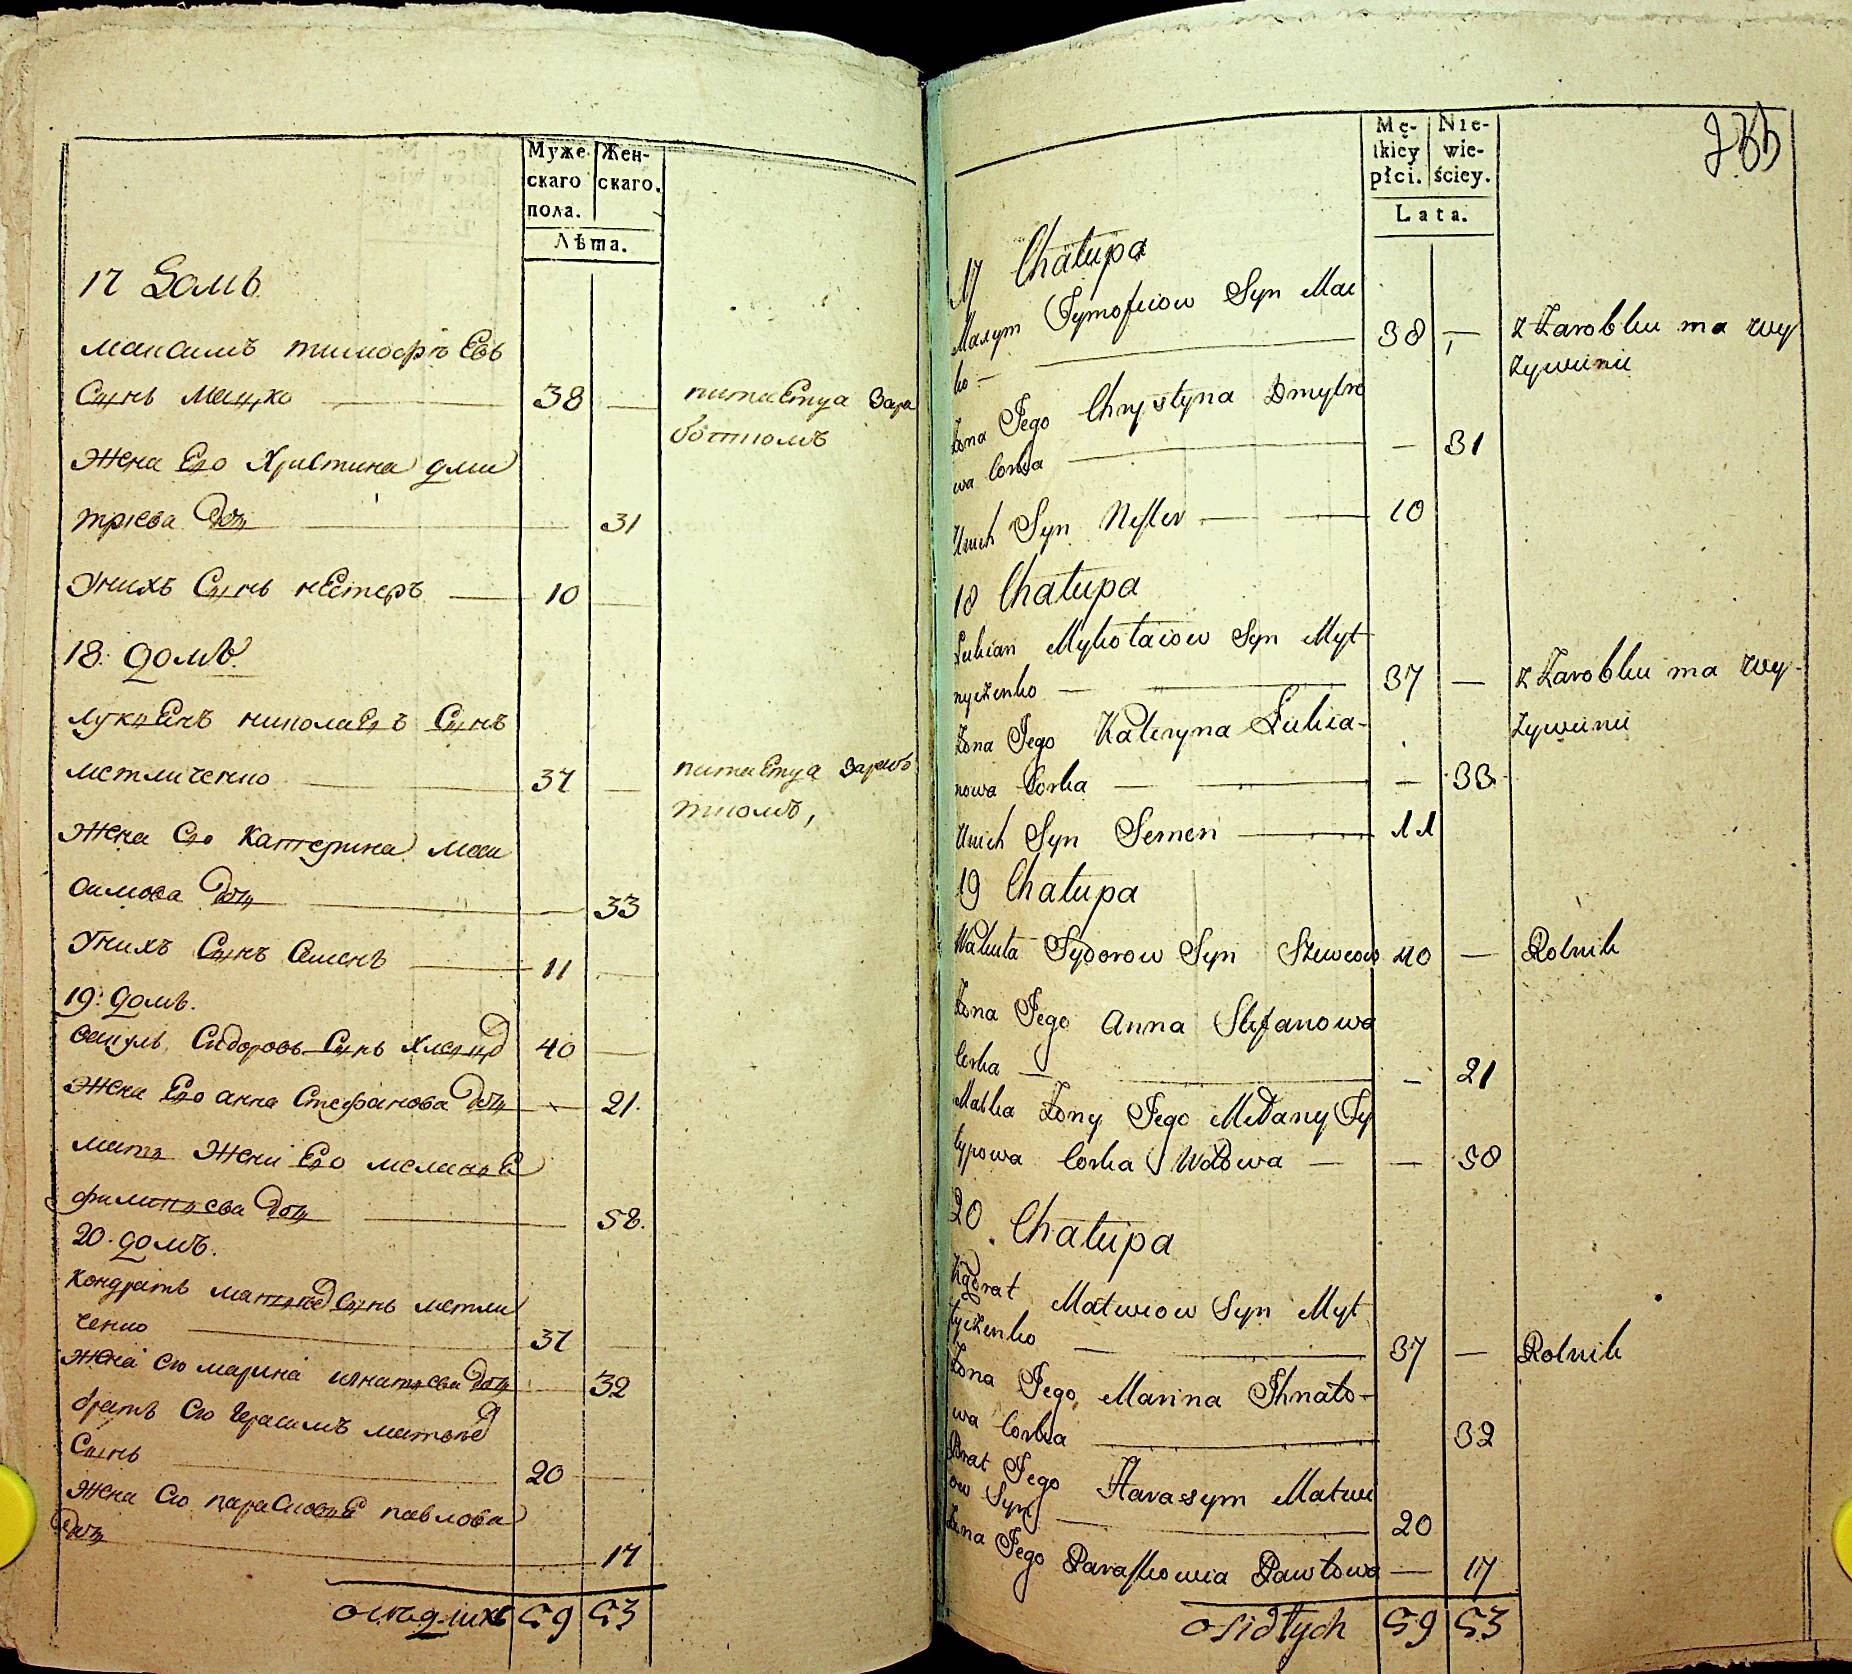 Муже
скаго
пола.
Жен-
скаго.
Лѣта.
17 Домъ
Максимъ тимофѣевъ
Сынъ Мацко — 38 —
питаетца зара
боткомъ
жена Его Христина дми
трiева дочь — 31
Унихъ Сынъ нестеръ — 10 —
18. домъ
лукЕянъ николаЕвъ Сынъ
метличенко — 37 —
питаетца зарабо
ткомъ,
жена Его Катерина
симова дочь — 33
Унихъ Сынъ Семенъ — 11 —
19. домъ.
Сидоровъ Сынъ 40 —
жена Его анна Стефанова дочь — 21.
мать жени Его меланЕ
филипьева дочь — 58.
20. домъ.
Кондратъ Сынъ метли
ченко — 37 —
жена Его марина игнатьева дочь — 32
братъ Его Герасимъ
Сынъ — 20 —
жена Его парасковЕ павлова
дочь — 17
оседлихъ 59 53
Mę-
ſkiey
płci.
Nie-
wie-
ściey.
Lata.
17 Chałupa
Maxym Tymofiiow Syn Mac
ko — 38 —
z Zarobku ma wy
zywinie
Zona Jego Chrystyna Dmytro
wa Corka — 31
Unich Syn Nester — 10
18 Chałupa
Lukian Mykołaiow Syn Myt
nyczenko — 37 —
z Zarobku ma wy-
zywinie
Zona Jego Kateryna Lukia-
nowa Corka — 33
Unich Syn Semen — 11
19 Chałupa
Wakuła Sydorow Syn Szewcow 40 — Rolnik
Zona Jego Anna Stefanowa
Corka — 21
Matka Zony Jego Melany Fy
lypowa Corka Wołowa — 58
20 Chałupa
Kądrat Matwiow Syn Myt
lyczenko — 37 — Rolnik
Zona Jego Marina Ihnato-
wa Corka — 32
Brat Jego Harasym Matwi
ow Syn — 20
Zona Jego Paraskowia Pawłowa — 17
osidłych 59 53